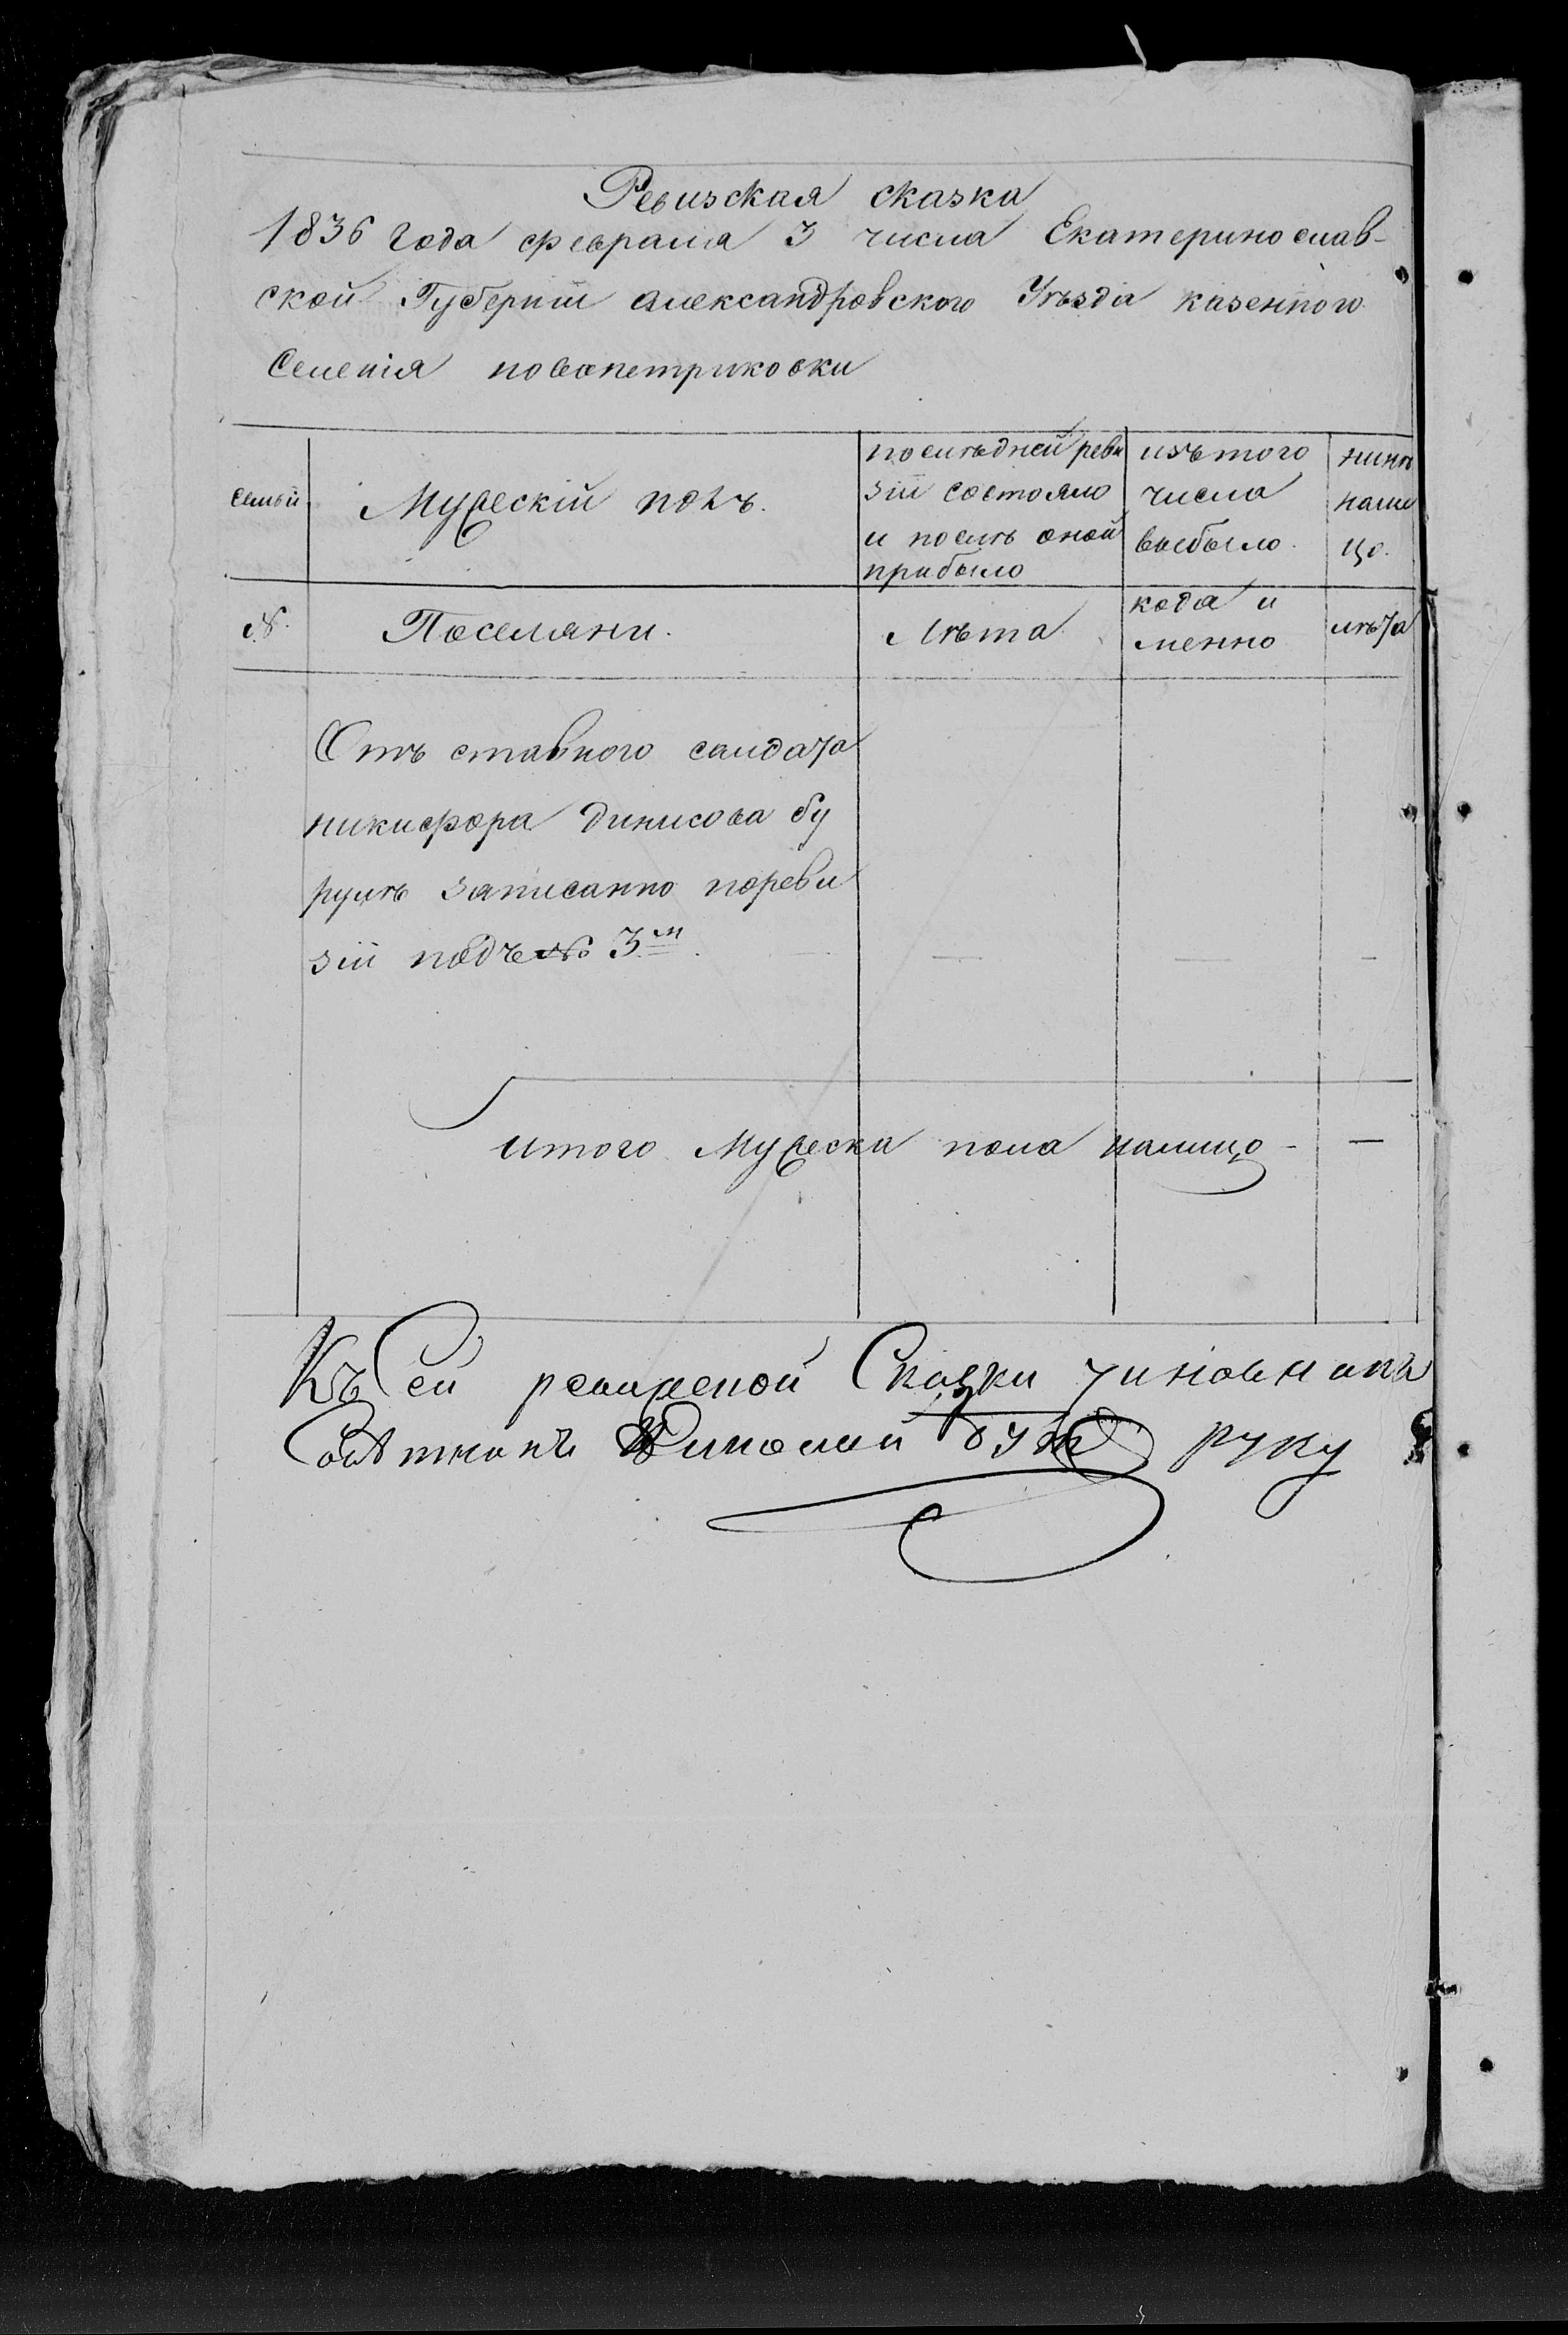 Ревизская сказка
1836 года февраля 3 числа Екатеринослав-
ской Губерніи александровского Уѣзда казенного
Селенія новопетриковки
семьи
Мужескій полъ.
послѣдней реви
зіи состояло
и послѣ оной
прибыло
изъ того
числа
выбыло.
нинѣ
нали
цо.
№.
Поселяни.
Лѣта
кода и
менно
лѣта
Отъ ставного салдата
никифора Динисова бу
рулѣ записанно пореви
зіи подъ № 3м.
итого Мужеска пола налицо - —
Къ Сей ревижской Сказки
руку